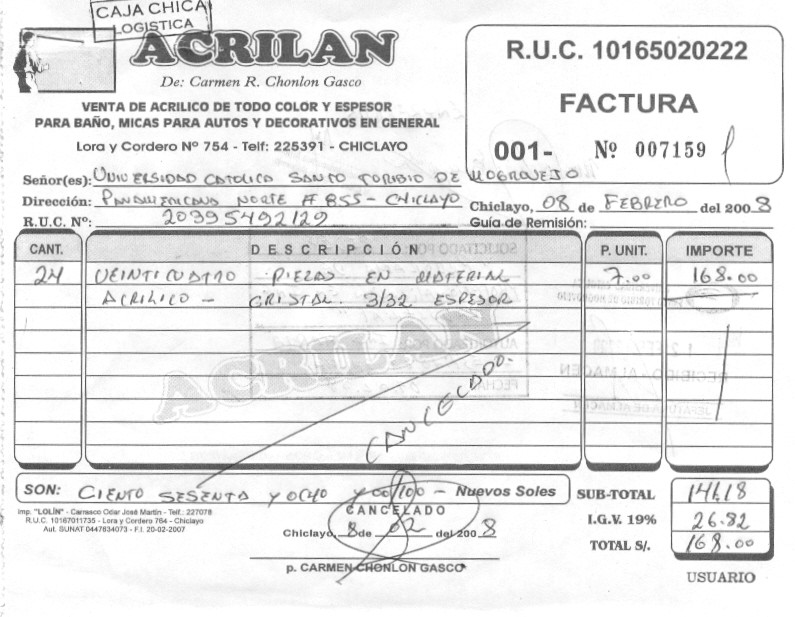 CAJA CHICA
LOGISTICA
ACRILAN
De: Carmen R. Chonlon Gasco
VENTA DE ACRILICO DE TODO COLOR Y ESPESOR
PARA BAÑO, MICAS PARA AUTOS Y DECORATIVOS EN GENERAL
Lora y Cordero Nº 754 - Telf: 225391 - CHICLAYO
R.U.C. 10165020222
FACTURA
001- Nº 007159
Señor(es): UNIVERSIDAD CATOLICA SANTO TORIBIO DE MOGROVEJO
Dirección: PANAMERICANA NORTE # 855 - CHICLAYO
Chiclayo, 08 de FEBRERO del 2008
R.U.C. Nº: 20395492129
Guía de Remisión:
CANT. DESCRIPCIÓN P. UNIT. IMPORTE
24 VEINTICUATRO PIEZAS EN MATERIAL 7.00 168.00
ACRILICO - CRISTAL 3/32 ESPESOR
ACRILAN
CANCELADO.
SON: CIENTO SESENTA Y OCHO Y 00/100 - Nuevos Soles
SUB-TOTAL 141.18
I.G.V. 19% 26.82
TOTAL S/. 168.00
Imp. "LOLÍN" - Carrasco Odar José Martín - Telf.: 227078
R.U.C. 10167011735 - Lora y Cordero 764 - Chiclayo
Aut. SUNAT 0447634073 - F.I. 20-02-2007
CANCELADO
Chiclayo, 8 de 02 del 2008
p. CARMEN CHONLON GASCO
USUARIO